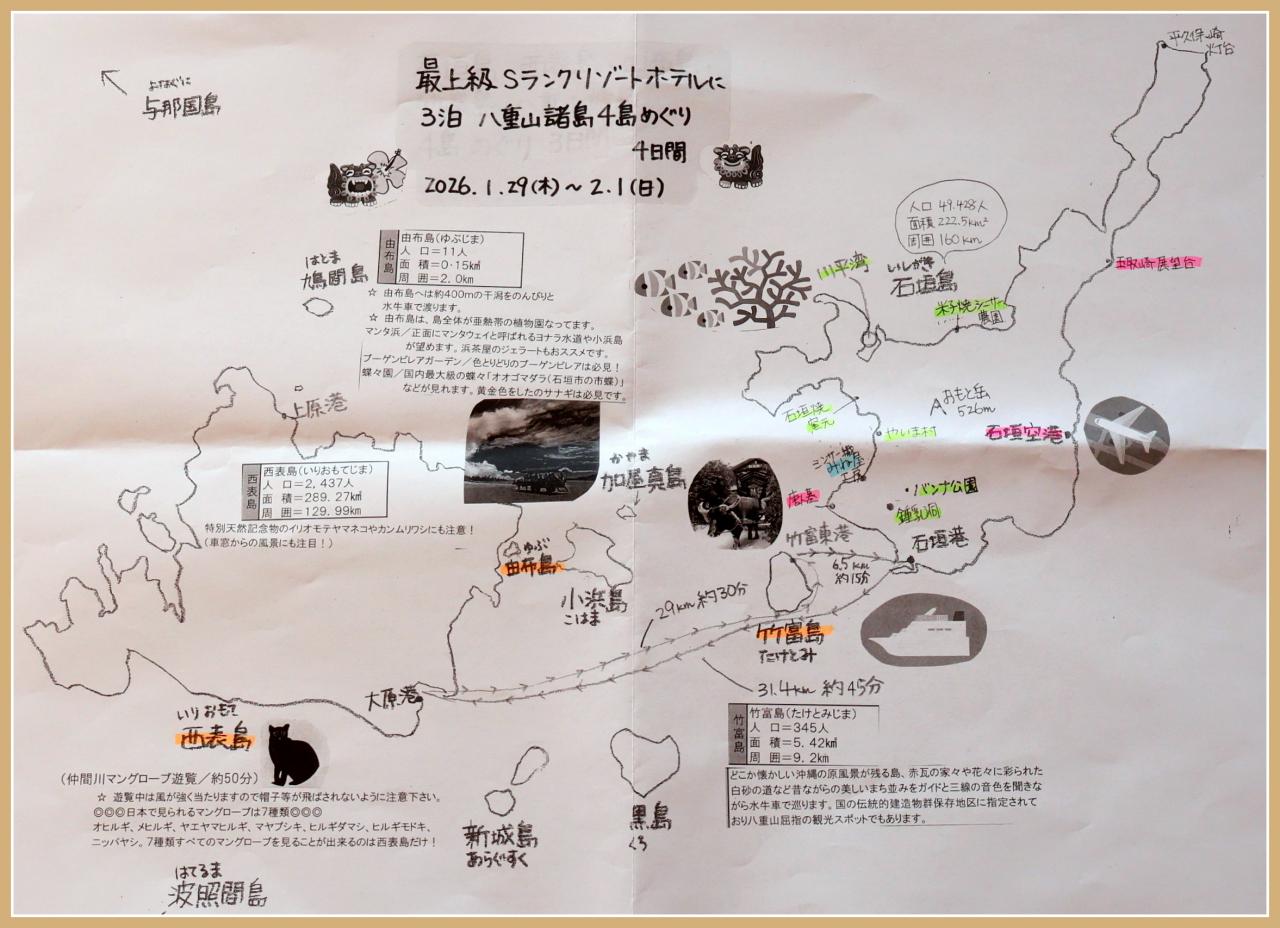 最上級Sランクリゾートホテルに
3泊 八重山諸島4島めぐり
4日間
2026.1.29(木)～2.1(日)
よなぐに
与那国島
平久保崎
灯台
人口 49.428人
面積 222.5km²
周囲 160km
いしがき
石垣島
川平湾
米子焼シーサー
農園
玉取崎展望台
はとま
鳩間島
由布島
由布島(ゆぶじま)
人 口＝11人
面 積＝0・15k㎡
周 囲＝2.0km
☆ 由布島へは約400mの干潟をのんびりと
水牛車で渡ります。
☆ 由布島は、島全体が亜熱帯の植物園なってます。
マンタ浜／正面にマンタウェイと呼ばれるヨナラ水道や小浜島
が望めます。浜茶屋のジェラートもおススメです。
ブーゲンビレアガーデン／色とりどりのブーゲンビレアは必見！
蝶々園／国内最大級の蝶々「オオゴマダラ(石垣市の市蝶)」
などが見れます。黄金色をしたのサナギは必見です。
上原港
おもと岳
526m
石垣焼
窯元
やいま村
石垣空港
ミンサー織
みね屋
工房
バンナ公園
唐人墓
鍾乳洞
石垣港
竹富東港
6.5km
約15分
西表島
西表島(いりおもてじま)
人 口＝2,437人
面 積＝289.27k㎡
周 囲＝129.99km
特別天然記念物のイリオモテヤマネコやカンムリワシにも注意！
(車窓からの風景にも注目！)
かやま
加屋真島
ゆぶ
由布島
小浜島
こはま
29km 約30分
竹富島
たけとみ
31.4km 約45分
大原港
いりおもて
西表島
(仲間川マングローブ遊覧／約50分)
☆ 遊覧中は風が強く当たりますので帽子等が飛ばされないように注意下さい。
◎◎◎日本で見られるマングローブは7種類◎◎◎
オヒルギ、メヒルギ、ヤエヤマヒルギ、マヤプシキ、ヒルギダマシ、ヒルギモドキ、
ニッパヤシ。7種類すべてのマングローブを見ることが出来るのは西表島だけ！
竹富島
竹富島(たけとみじま)
人 口＝345人
面 積＝5.42k㎡
周 囲＝9.2km
どこか懐かしい沖縄の原風景が残る島、赤瓦の家々や花々に彩られた
白砂の道など昔ながらの美しいまち並みをガイドと三線の音色を聞きな
がら水牛車で巡ります。国の伝統的建造物群保存地区に指定されて
おり八重山屈指の観光スポットでもあります。
新城島
あらぐすく
黒島
くろ
はてるま
波照間島